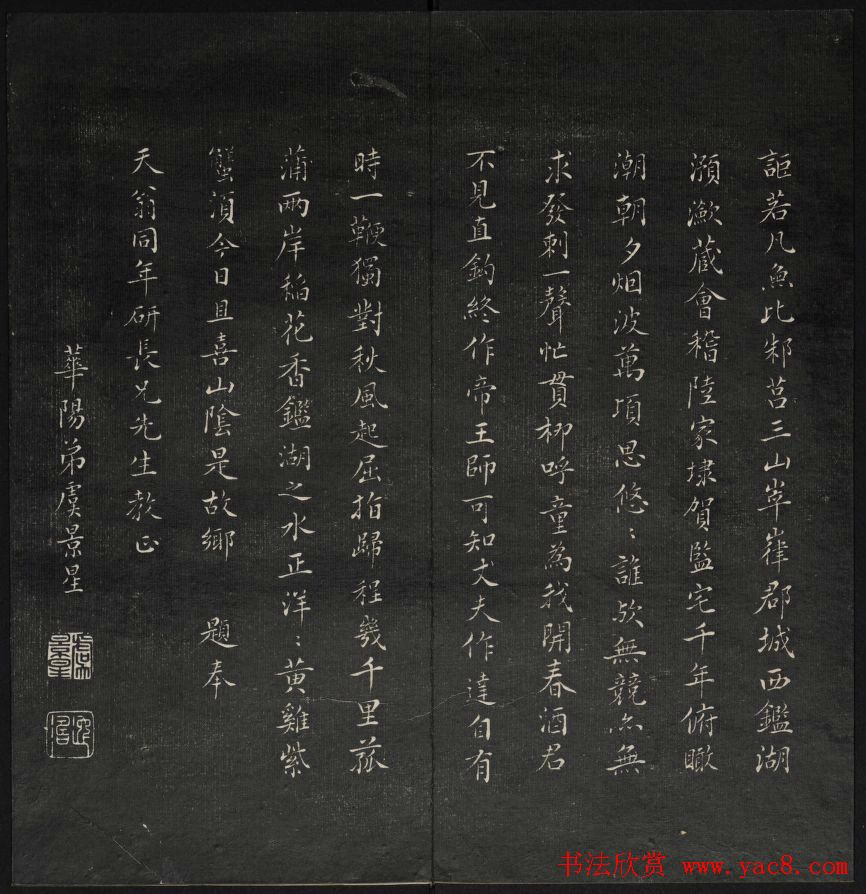 詎若凡魚比邾莒三山崒嵂郡城西鑑湖
瀕潋蔵會稽陸家埭賀監宅千年俯瞰
潮朝夕烟波萬頃思悠〻誰欤無競亦無
求發刺一聲忙貫柳呼童為我開春酒君
不見直鈎終作帝王師可知丈夫作達自有
時一鞭獨對秋風起屈指歸程幾千里菰
蒲兩岸稲花香鑑湖之水正洋〻黄雞紫
蟹湏今日且喜山陰是故鄉 題奉
天翁同年研長兄先生教正
華陽弟虞景星
虞景星
书法欣赏 www.yac8.com